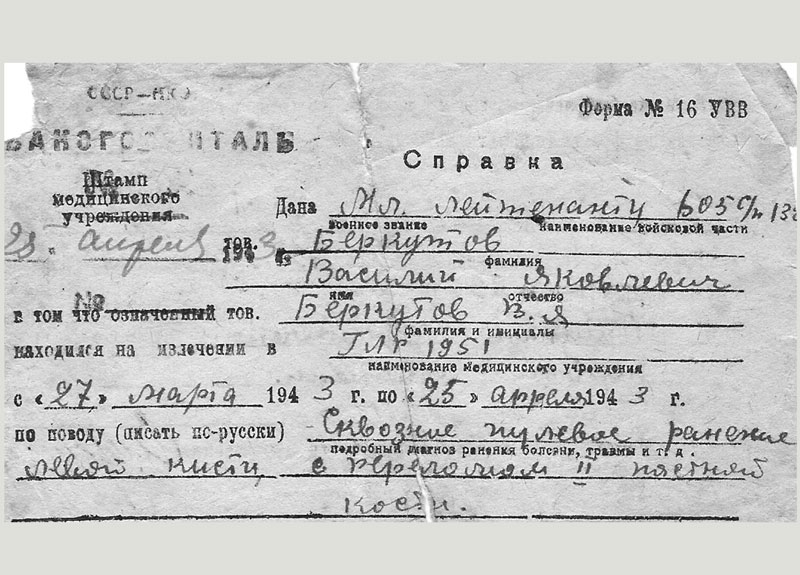 СССР—НКО
Форма № 16 УВВ
Справка
Штамп
медицинского
учреждения
Дана Мл. лейтенанту
военное звание наименование войсковой части
25 апреля 1943 тов. Беркутов
фамилия
Василий Яковлевич
имя отчество
№
в том что означенный тов. Беркутов В.Я
фамилия и инициалы
находился на излечении в ГЛР 1951
наименование медицинского учреждения
с «27» марта 1943 г. по «25» апреля 1943 г.
по поводу (писать по-русски) Сквозное пулевое ранение
подробный диагноз ранения болезни, травмы и т. д.
левой кисти с переломом II пястной
кости.